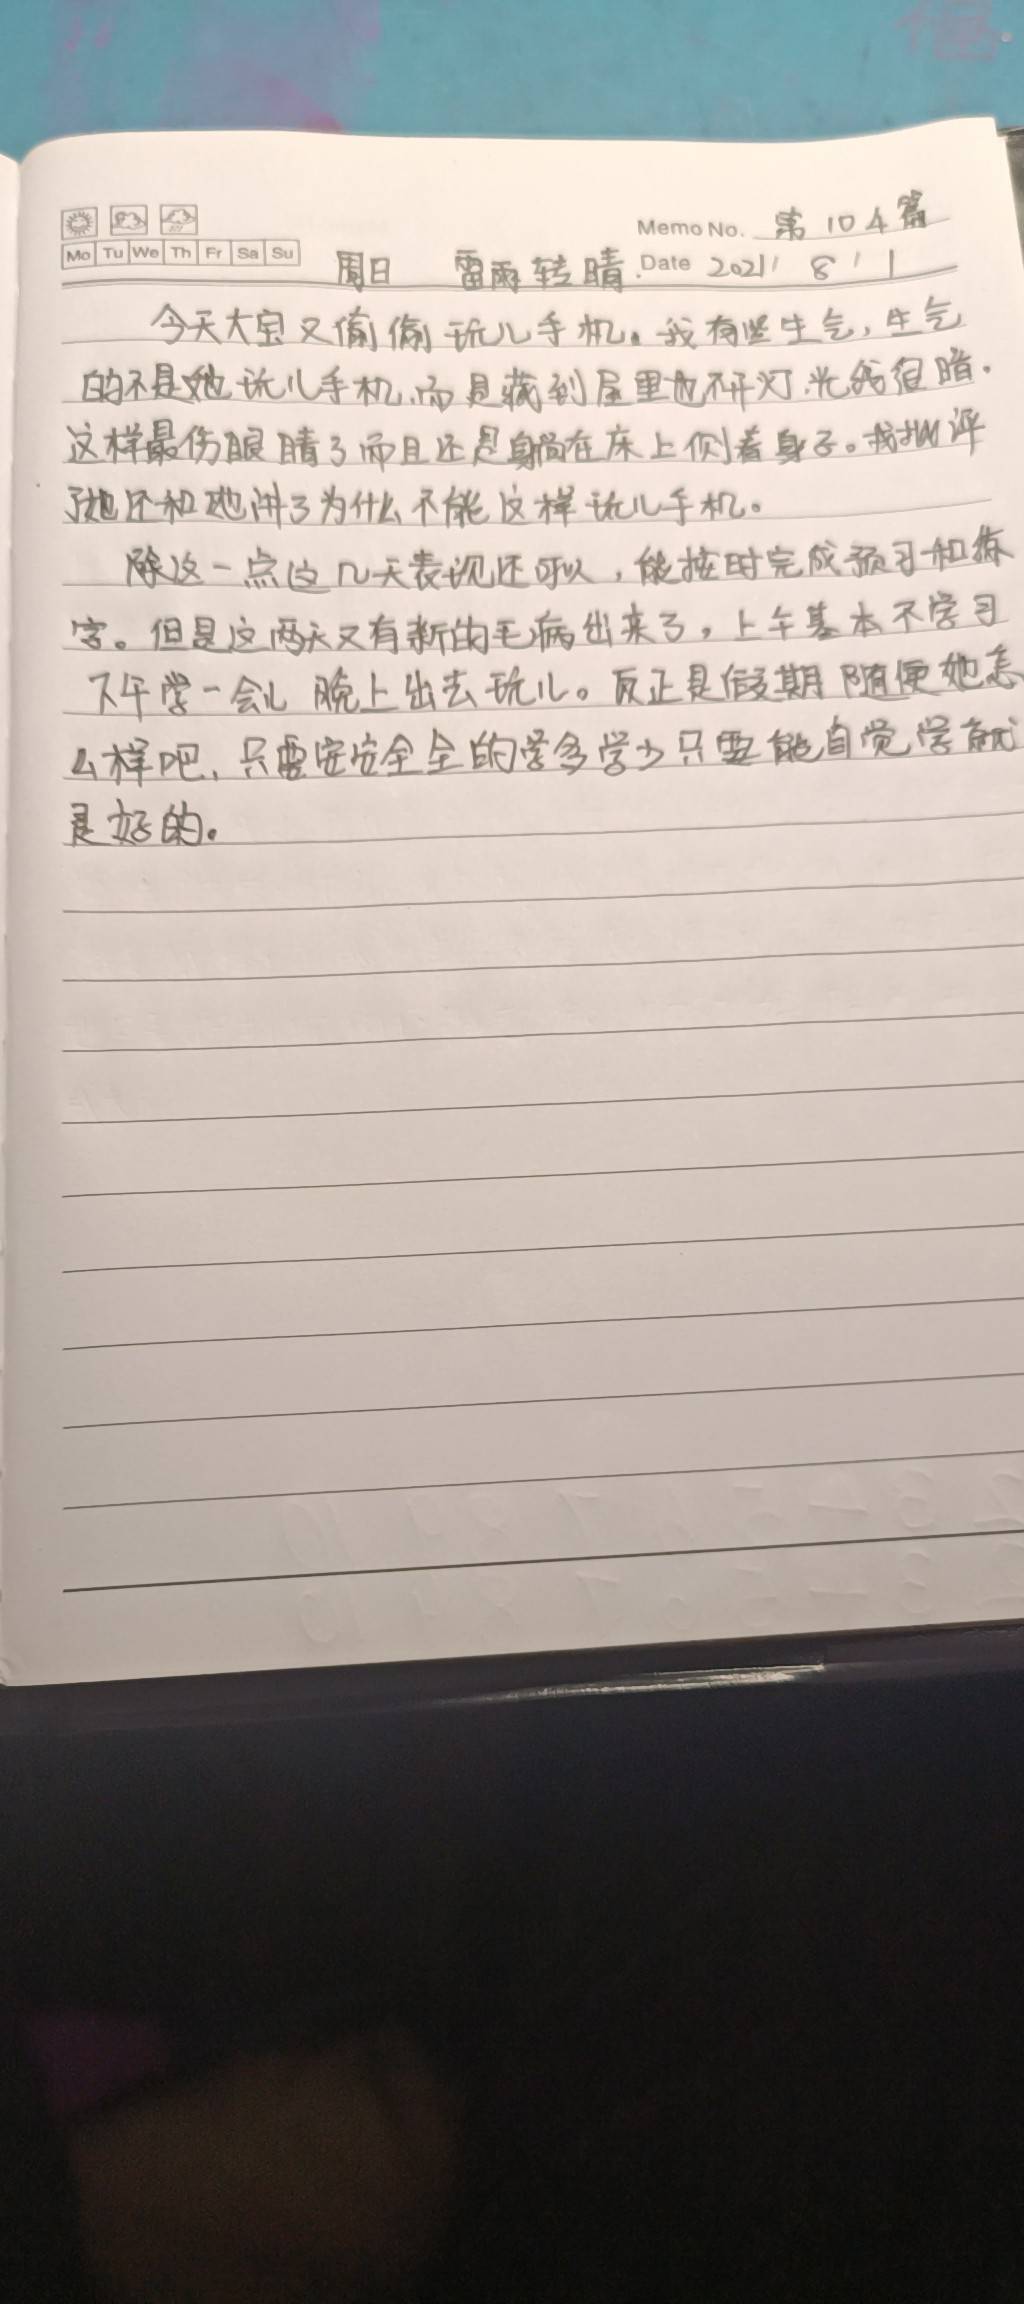 Memo No. 第104篇
Mo Tu We Th Fr Sa Su
周日 雷雨转晴. Date 2021 / 8 / 1
今天大宝又偷偷玩儿手机。我有些生气,生气
的不是她玩儿手机,而是藏到屋里也不开灯,光线很暗.
这样最伤眼睛了而且还是躺在床上侧着身子。我批评
了她还和她讲了为什么不能这样玩儿手机。
除这一点这几天表现还可以,能按时完成预习和练
字。但是这两天又有新的毛病出来了,上午基本不学习
下午学一会儿 晚上出去玩儿。反正是假期随便她怎
么样吧,只要安安全全的学多学少只要能自觉学就
是好的。